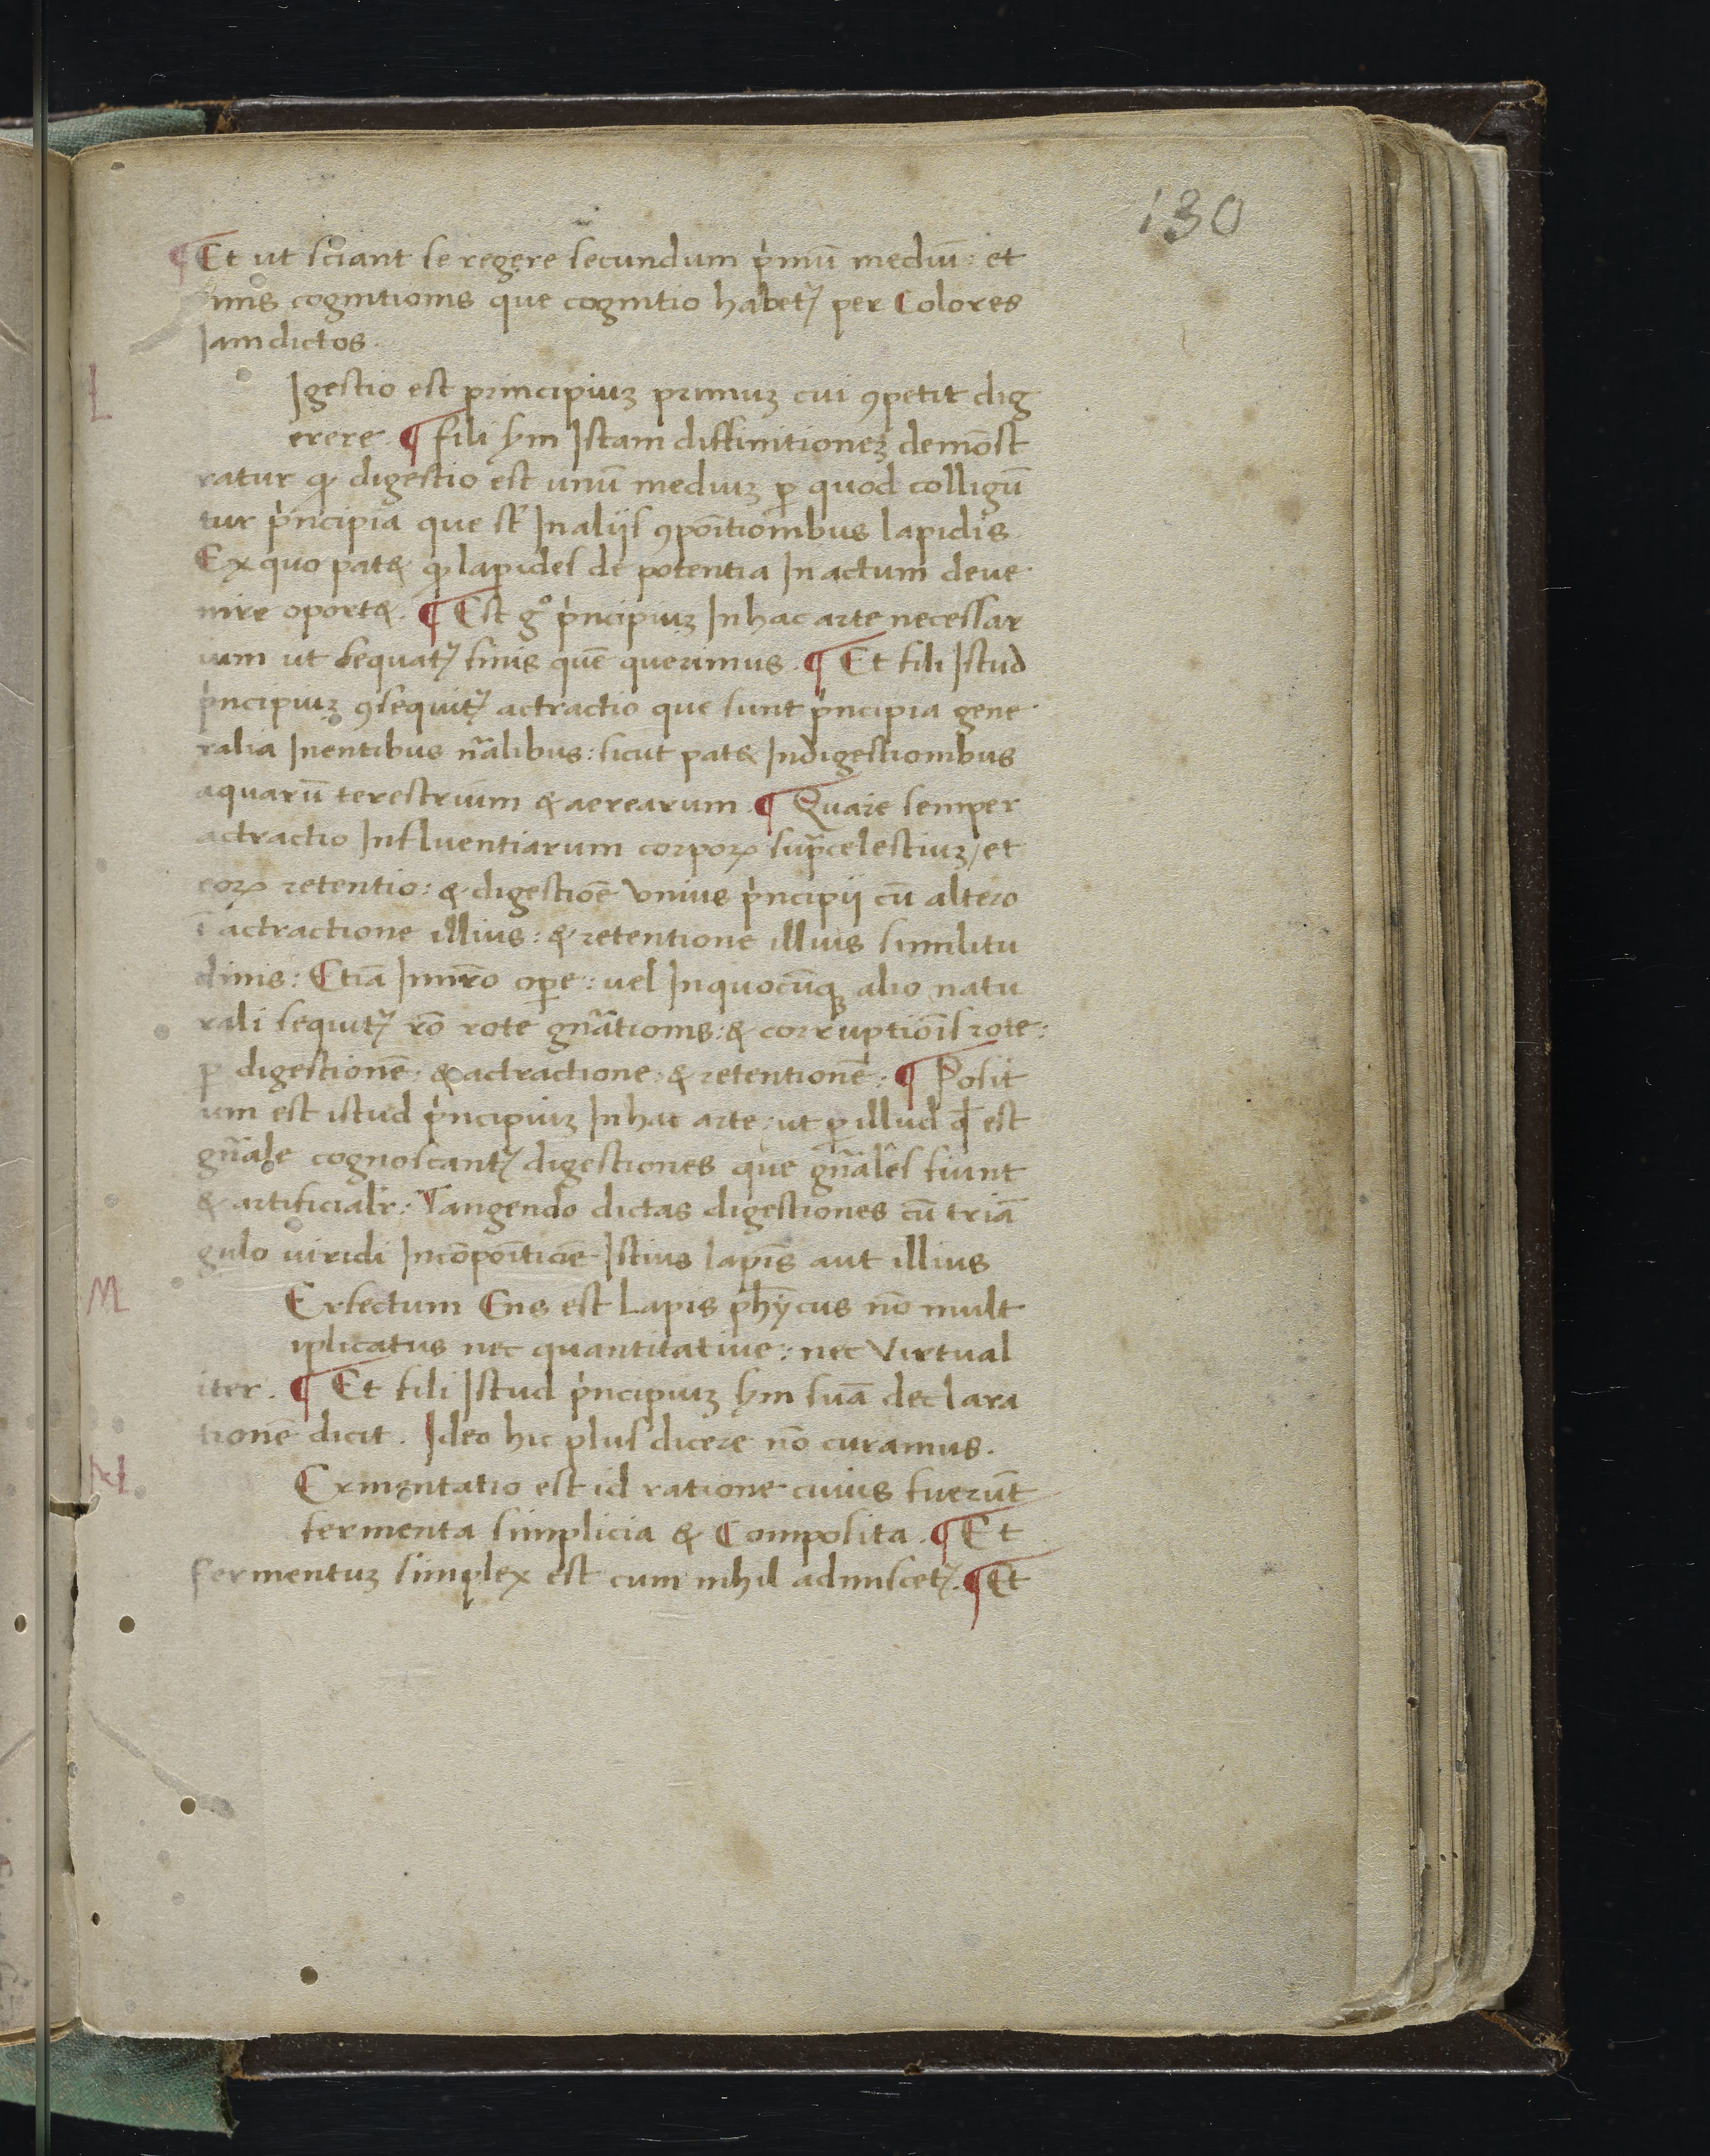 130
¶ Et ut sciant se regere secundum p̍mū mediū: et
nnis cognitionis que cognitio habetꝭ per Colores
Jam dictos.
L
Jgestio est principiuꝫ primuꝫ cui ꝯpetit dig
erere. ¶ fili hm̄ Jstam diffinitioneꝫ demōst
ratur ꝙ digestio est unū mediuꝫ ꝑ quod colligū
tur p̍ncipia que st̄ Jn alijs ꝯpōitionibus lapidis
Ex quo pat& ꝙ lapides de potentia Jn actum deue
nire oport&. ¶ Est gͦ p̍ncipiuꝫ Jn hac arte necessar
ium ut sequatꝭ finis quē querimus. ¶ Et fili Jstud
p̍ncipiuꝫ ꝯsequitꝭ actractio que sunt p̍ncipia gene
ralia Jnentibus nālibus: sicut pat& Jndigestionibus
aquarū terestrium & aerearum. ¶ Quare semper
actractio Jnfluentiarum corporꝝ sup̄celestiuꝫ / et
eorꝝ retentio: & digestiōē vnius p̍ncipij cū altero
ī actractione illius: & retentione illius similitu
dinis: Etiā Jnnr̄o oꝑe: uel Jnquocūqꝫ alio natu
rali sequitꝭ rō rote gn̄ationis: & corruptiōis rote:
ꝑ digestionē: & actractione: & retentionē: ¶ Posit
um est istud p̍ncipiuꝫ Jn hac arte: ut ꝑ illud qđ est
gn̄ale cognoscantꝭ digestiones que gn̄ales fiunt
& artificialr̄: Tangendo dictas digestiones cū triā
gulo uiridi Jncōpōitiōe Jstius lapīs aut illius
M
Erfectum Ens est Lapis phȳcus nō mult
iplicatus nec quantitatiue: nec Virtual
iter. ¶ Et fili Jstud p̍ncipiuꝫ hm̄ suā declara
tionē dicit. Jdeo hic plus dicere nō curamus.
N
Ermentatio est id ratione cuius fuerūt
fermenta simplicia & Composita. ¶ Et
fermentuꝫ simplex est cum nihil admiscetꝭ. ¶ Et